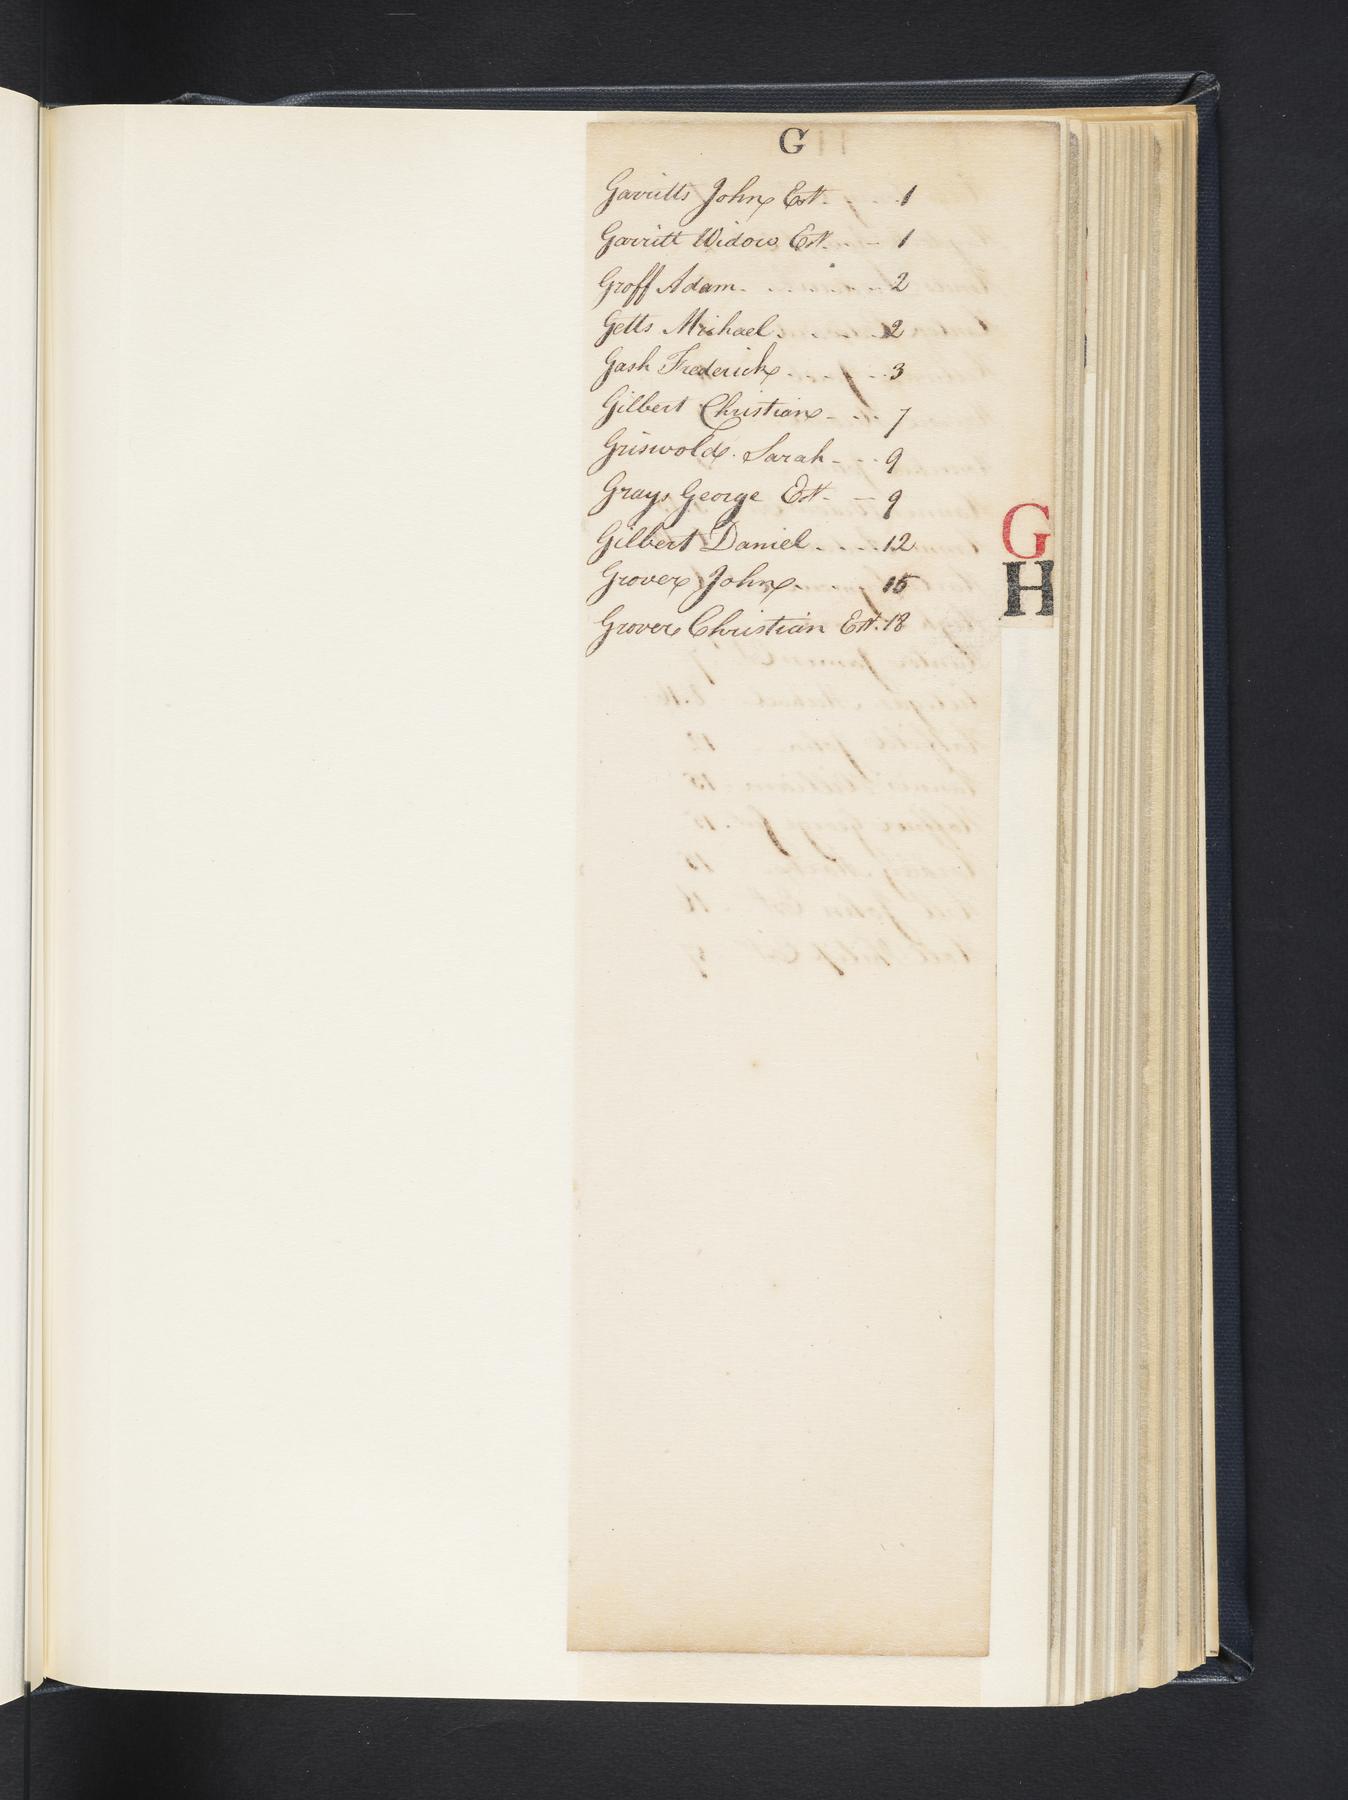 G
Garritts John Est. 1
Garritt Widow Est. 1
Groff Adam 2
Getts Michael 2
Gash Frederick 3
Gilbert Christian 7
Griswold Sarah 9
Grays George Est. 9
Gilbert Daniel 12
Grover John 15
Grover Christian Est. 18
G
H